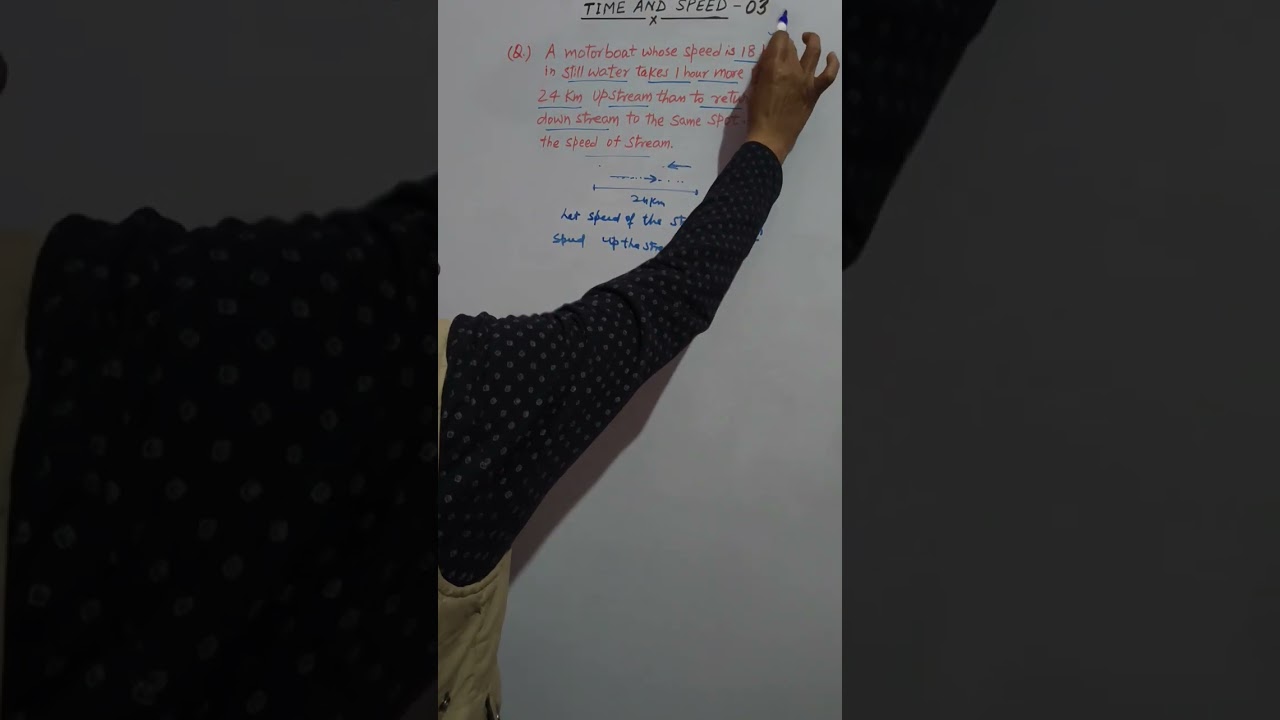 TIME AND SPEED - 03
x
(Q.) A motorboat whose speed is 18
in still water takes 1 hour more
24 Km upstream than to
down stream to the same spot.
the speed of stream.
24 Km
Let speed of the
Speed up the